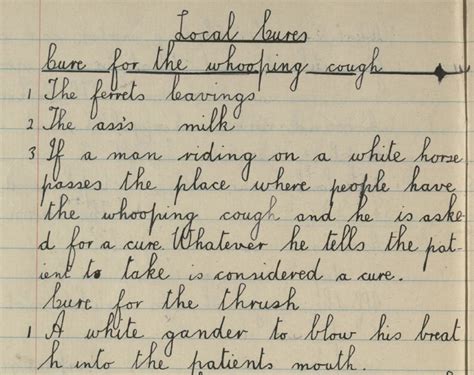 Local Cures
Cure for the whooping cough
1 The ferrets leavings
2 The ass's milk
3 If a man riding on a white horse
passes the place where people have
the whooping cough and he is aske-
d for a cure. Whatever he tells the pat-
ient to take is considered a cure.
Cure for the thrush
1 A white gander to blow his breat
h into the patients mouth.